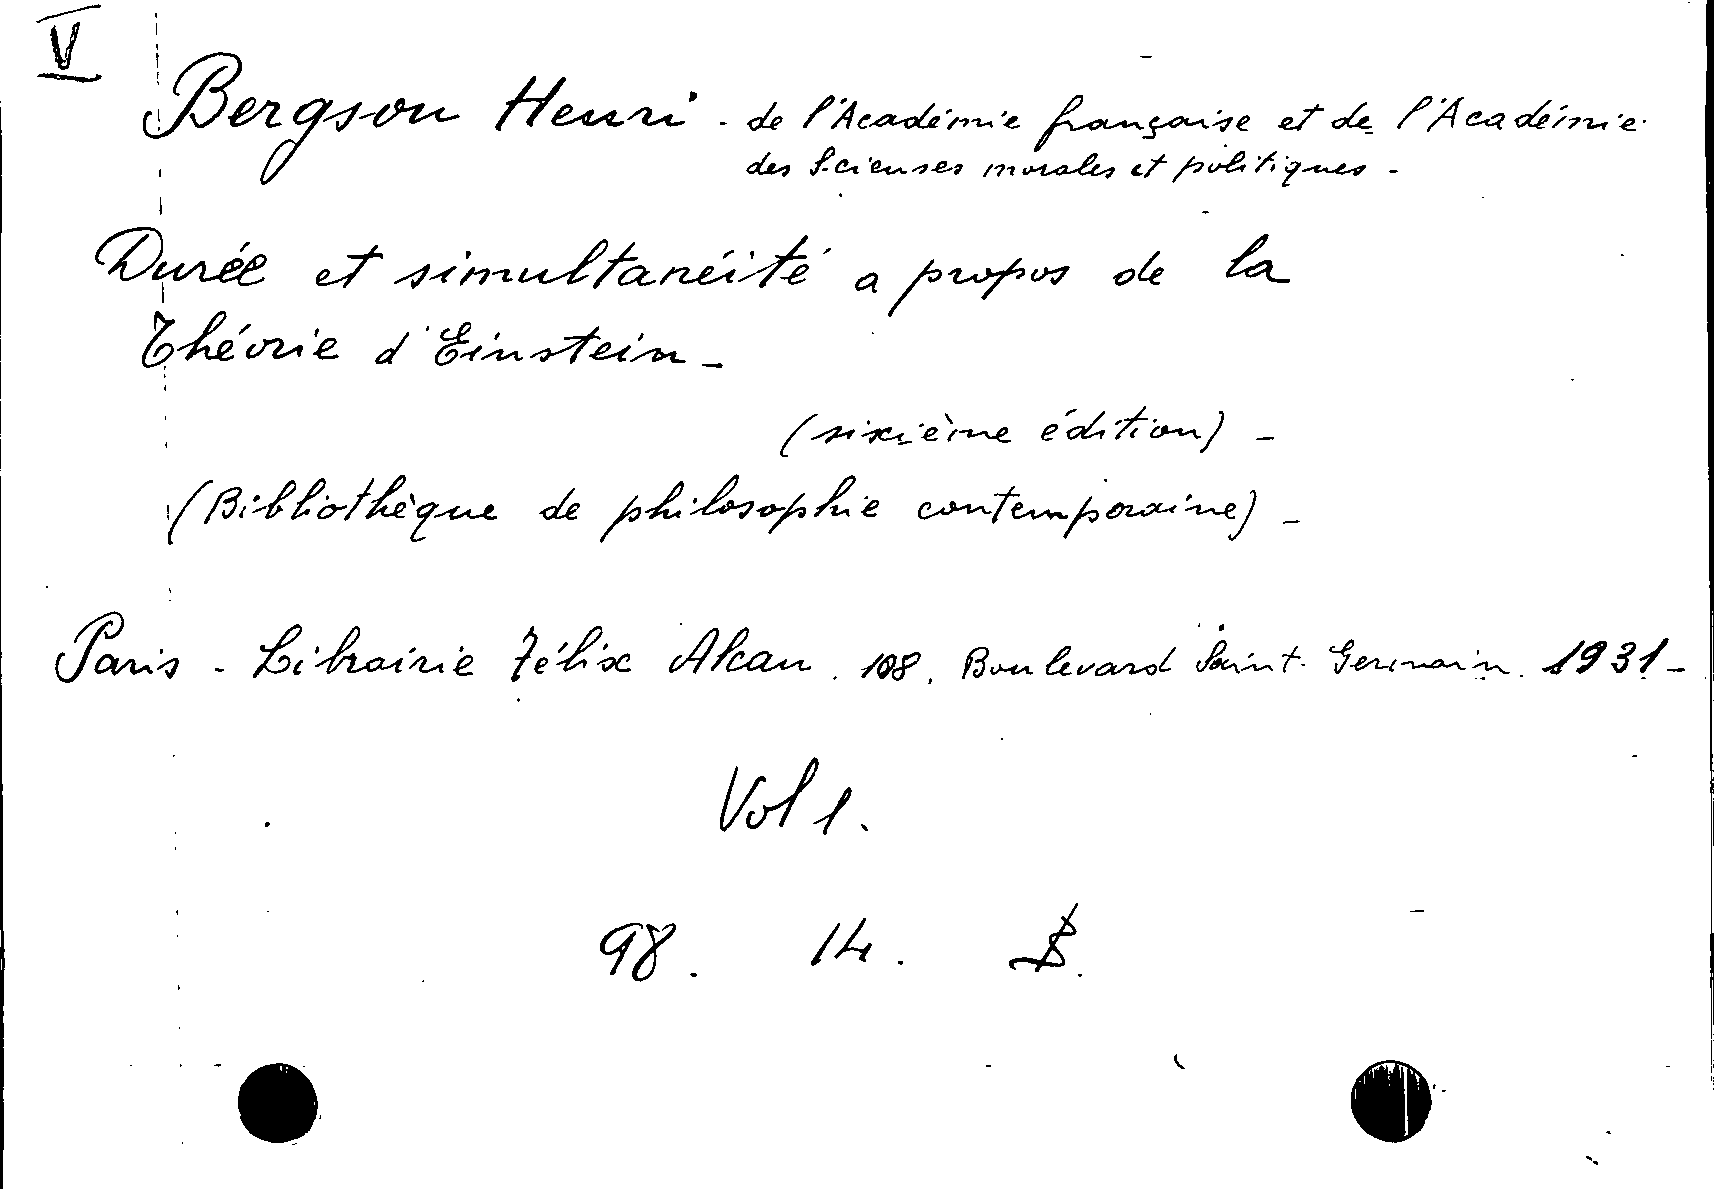 V
Bergson Henri - de l'Académie française et de l'Académie
des Scienses morales et politiques -
Durée et simultanéité a propos de la
Théorie d'Einstein -
(sixième édition) -
(Bibliothèque de philosophie contemporaine) -
Paris - Librairie Félix Alcan . 108 . Boulevard Saint-Germain . 1931 -
Vol 1.
98. 14. B.